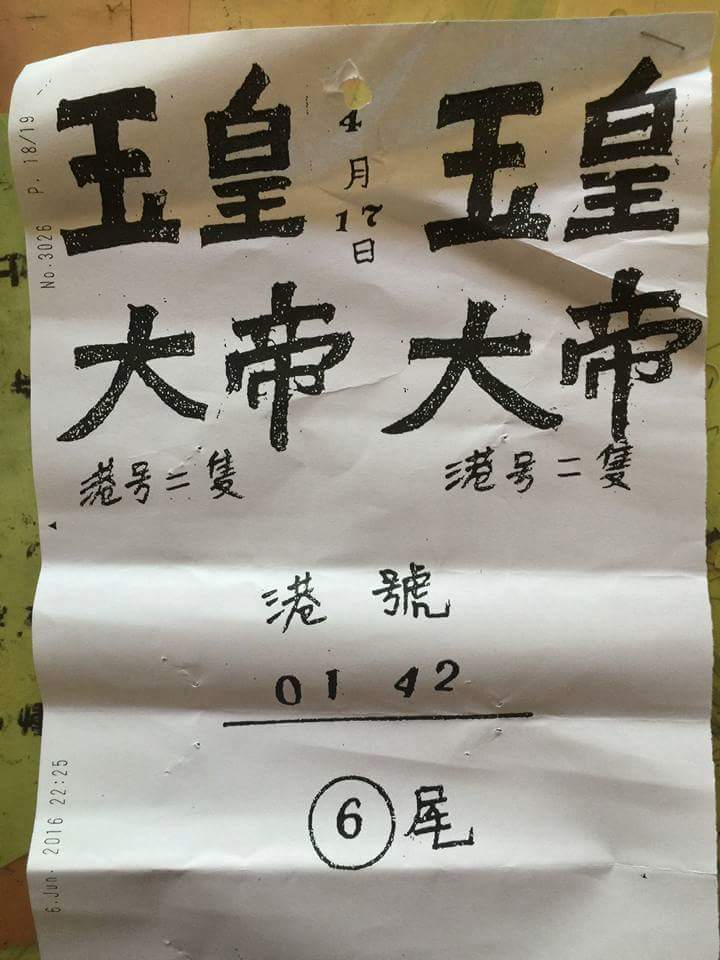 No.3026 P. 18/19
玉皇 4月17日 玉皇
大帝 大帝
港号二隻 港号二隻
港號
01 42
6尾
6.Jun. 2016 22:25